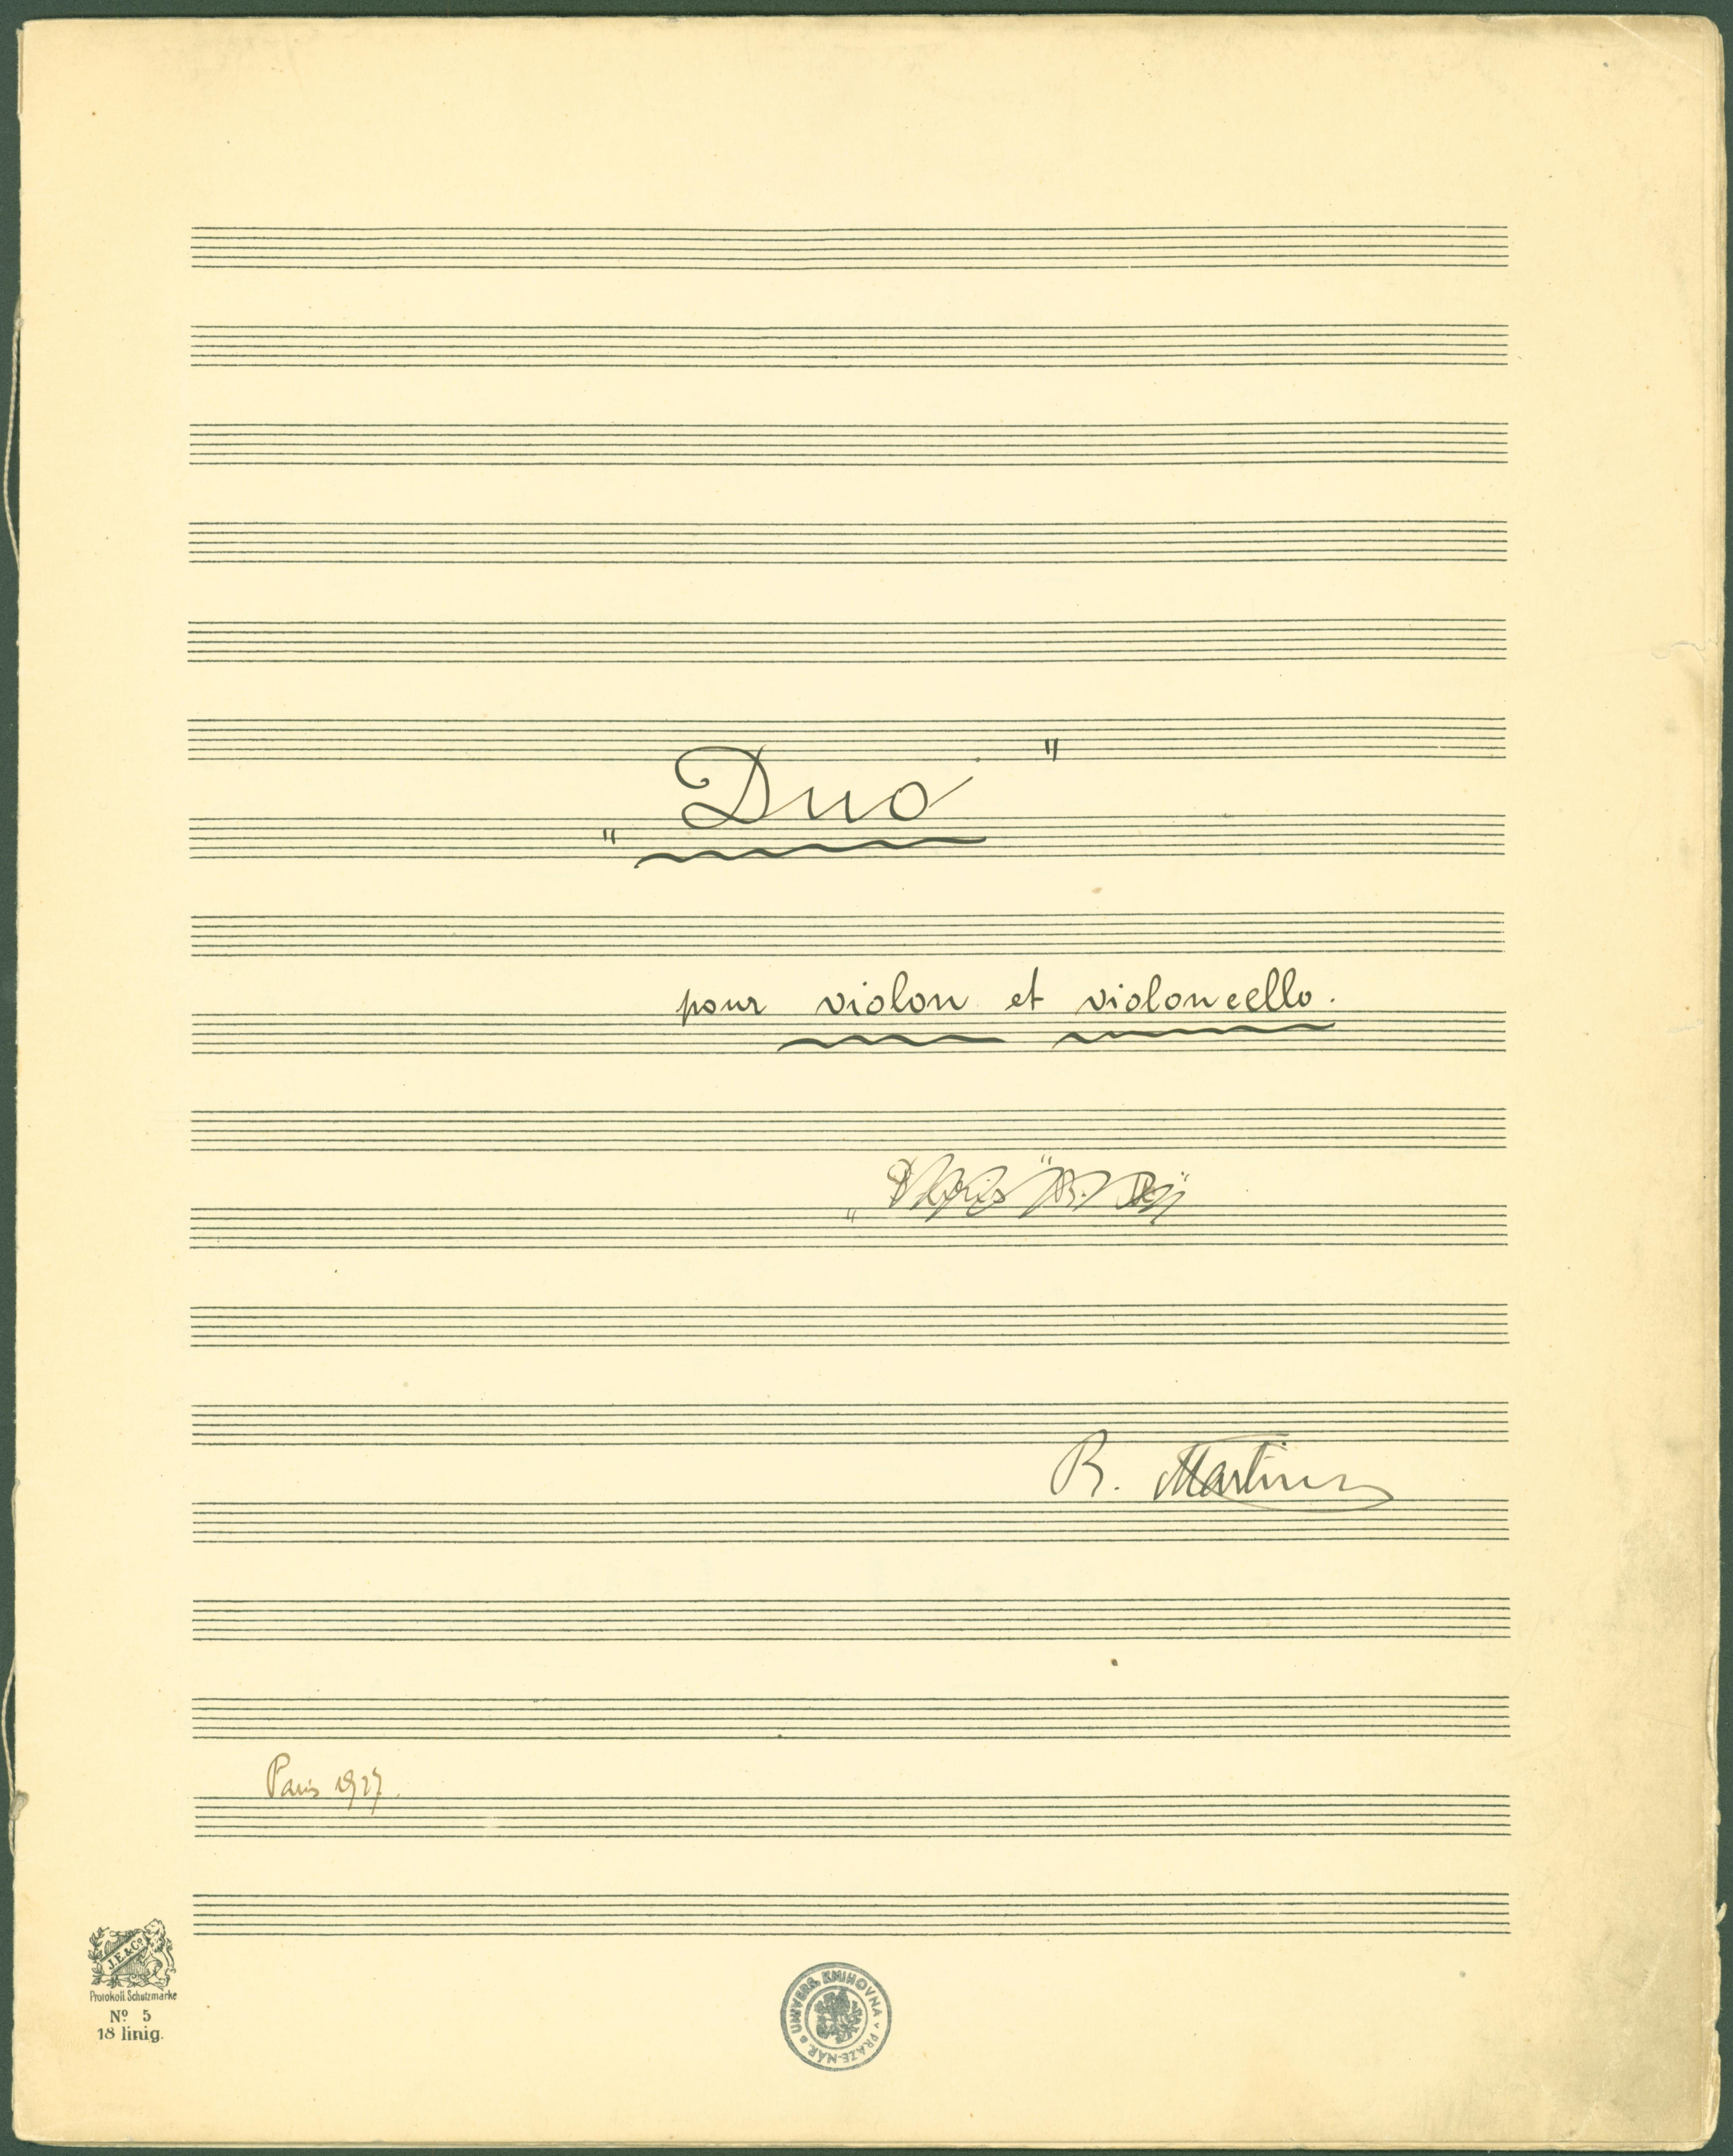 „Duo"
pour violon et violoncello.
B. Martinů
Paris 1927.
J.E. & Co.
Protokoll. Schutzmarke
Nº 5
18 linig.
UNIVERS. KNIHOVNA V PRAZE-NÁR.